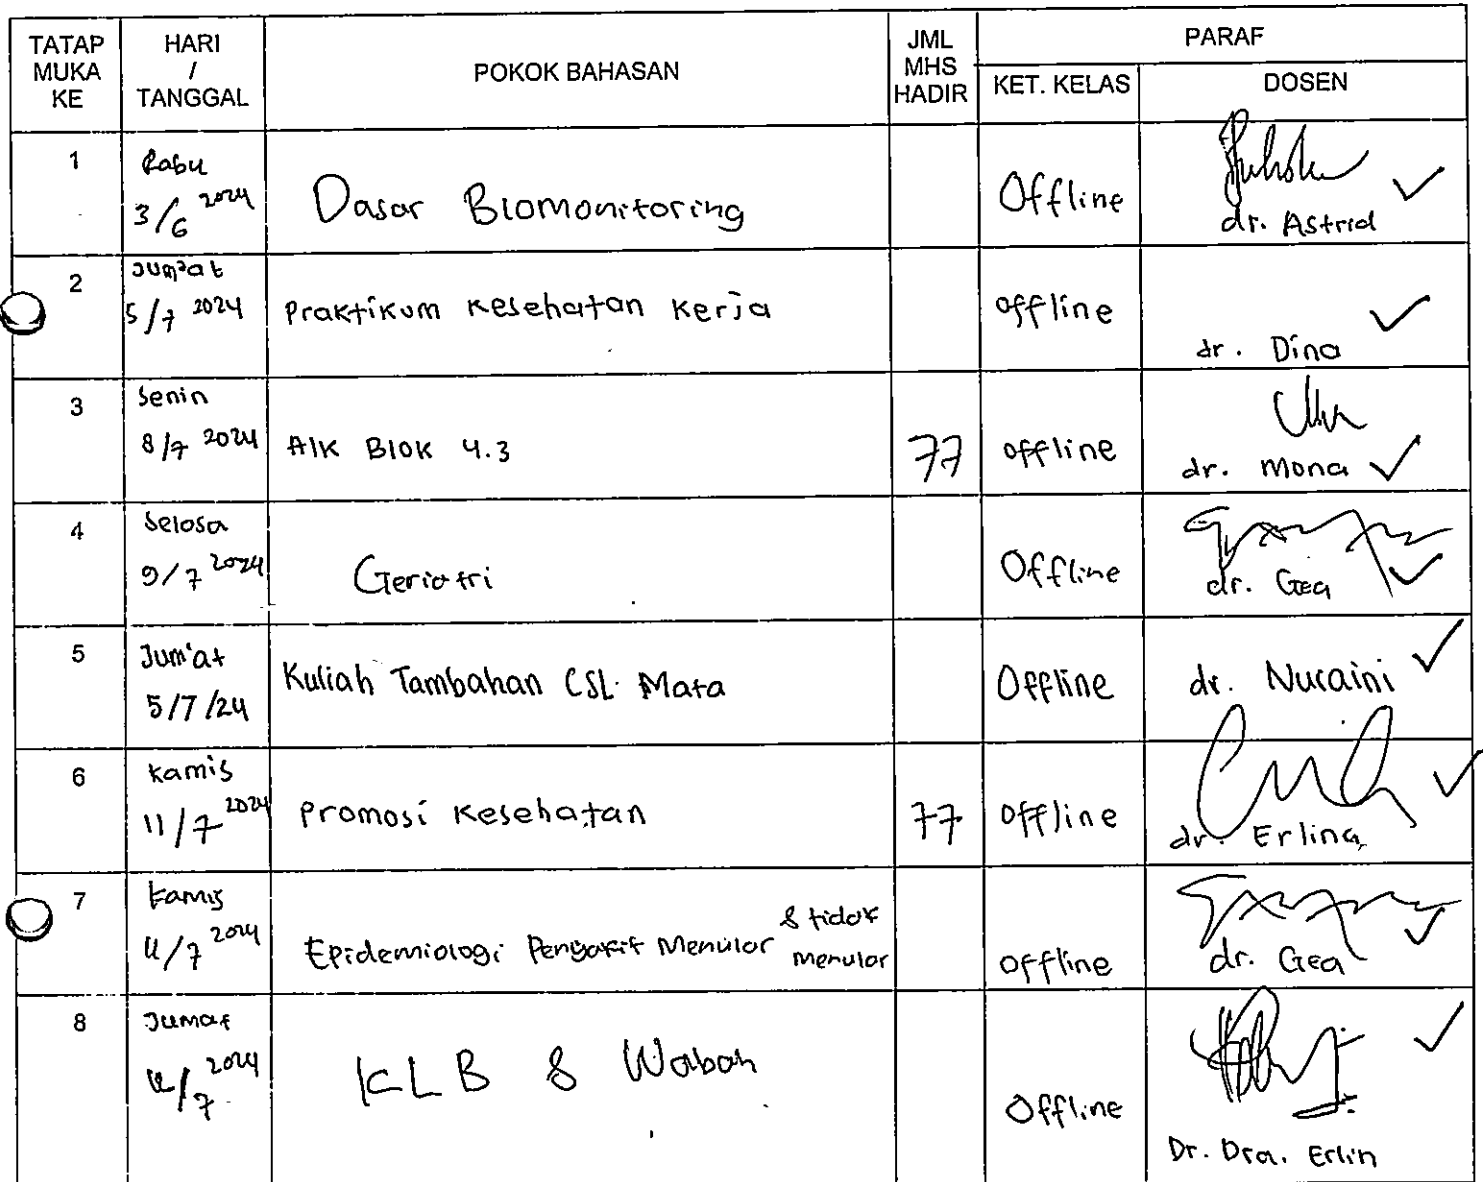 TATAP MUKA KE | HARI / TANGGAL | POKOK BAHASAN | JML MHS HADIR | PARAF
KET. KELAS | DOSEN
1 | Rabu 3/6 2024 | Dasar Biomonitoring | | Offline | dr. Astrid ✓
2 | Jum'at 5/7 2024 | Praktikum Kesehatan Kerja | | offline | dr. Dina ✓
3 | Senin 8/7 2024 | AIK Blok 4.3 | 77 | offline | dr. Mona ✓
4 | Selasa 9/7 2024 | Geriatri | | Offline | dr. Gea ✓
5 | Jum'at 5/7/24 | Kuliah Tambahan CSL Mata | | Offline | dr. Nuraini ✓
6 | Kamis 11/7 2024 | Promosi Kesehatan | 77 | Offline | dr. Erlina ✓
7 | Kamis 11/7 2024 | Epidemiologi Penyakit Menular & tidak menular | | offline | dr. Gea ✓
8 | Jumat 12/7 2024 | KLB & Wabah | | Offline | Dr. Dra. Erlin ✓